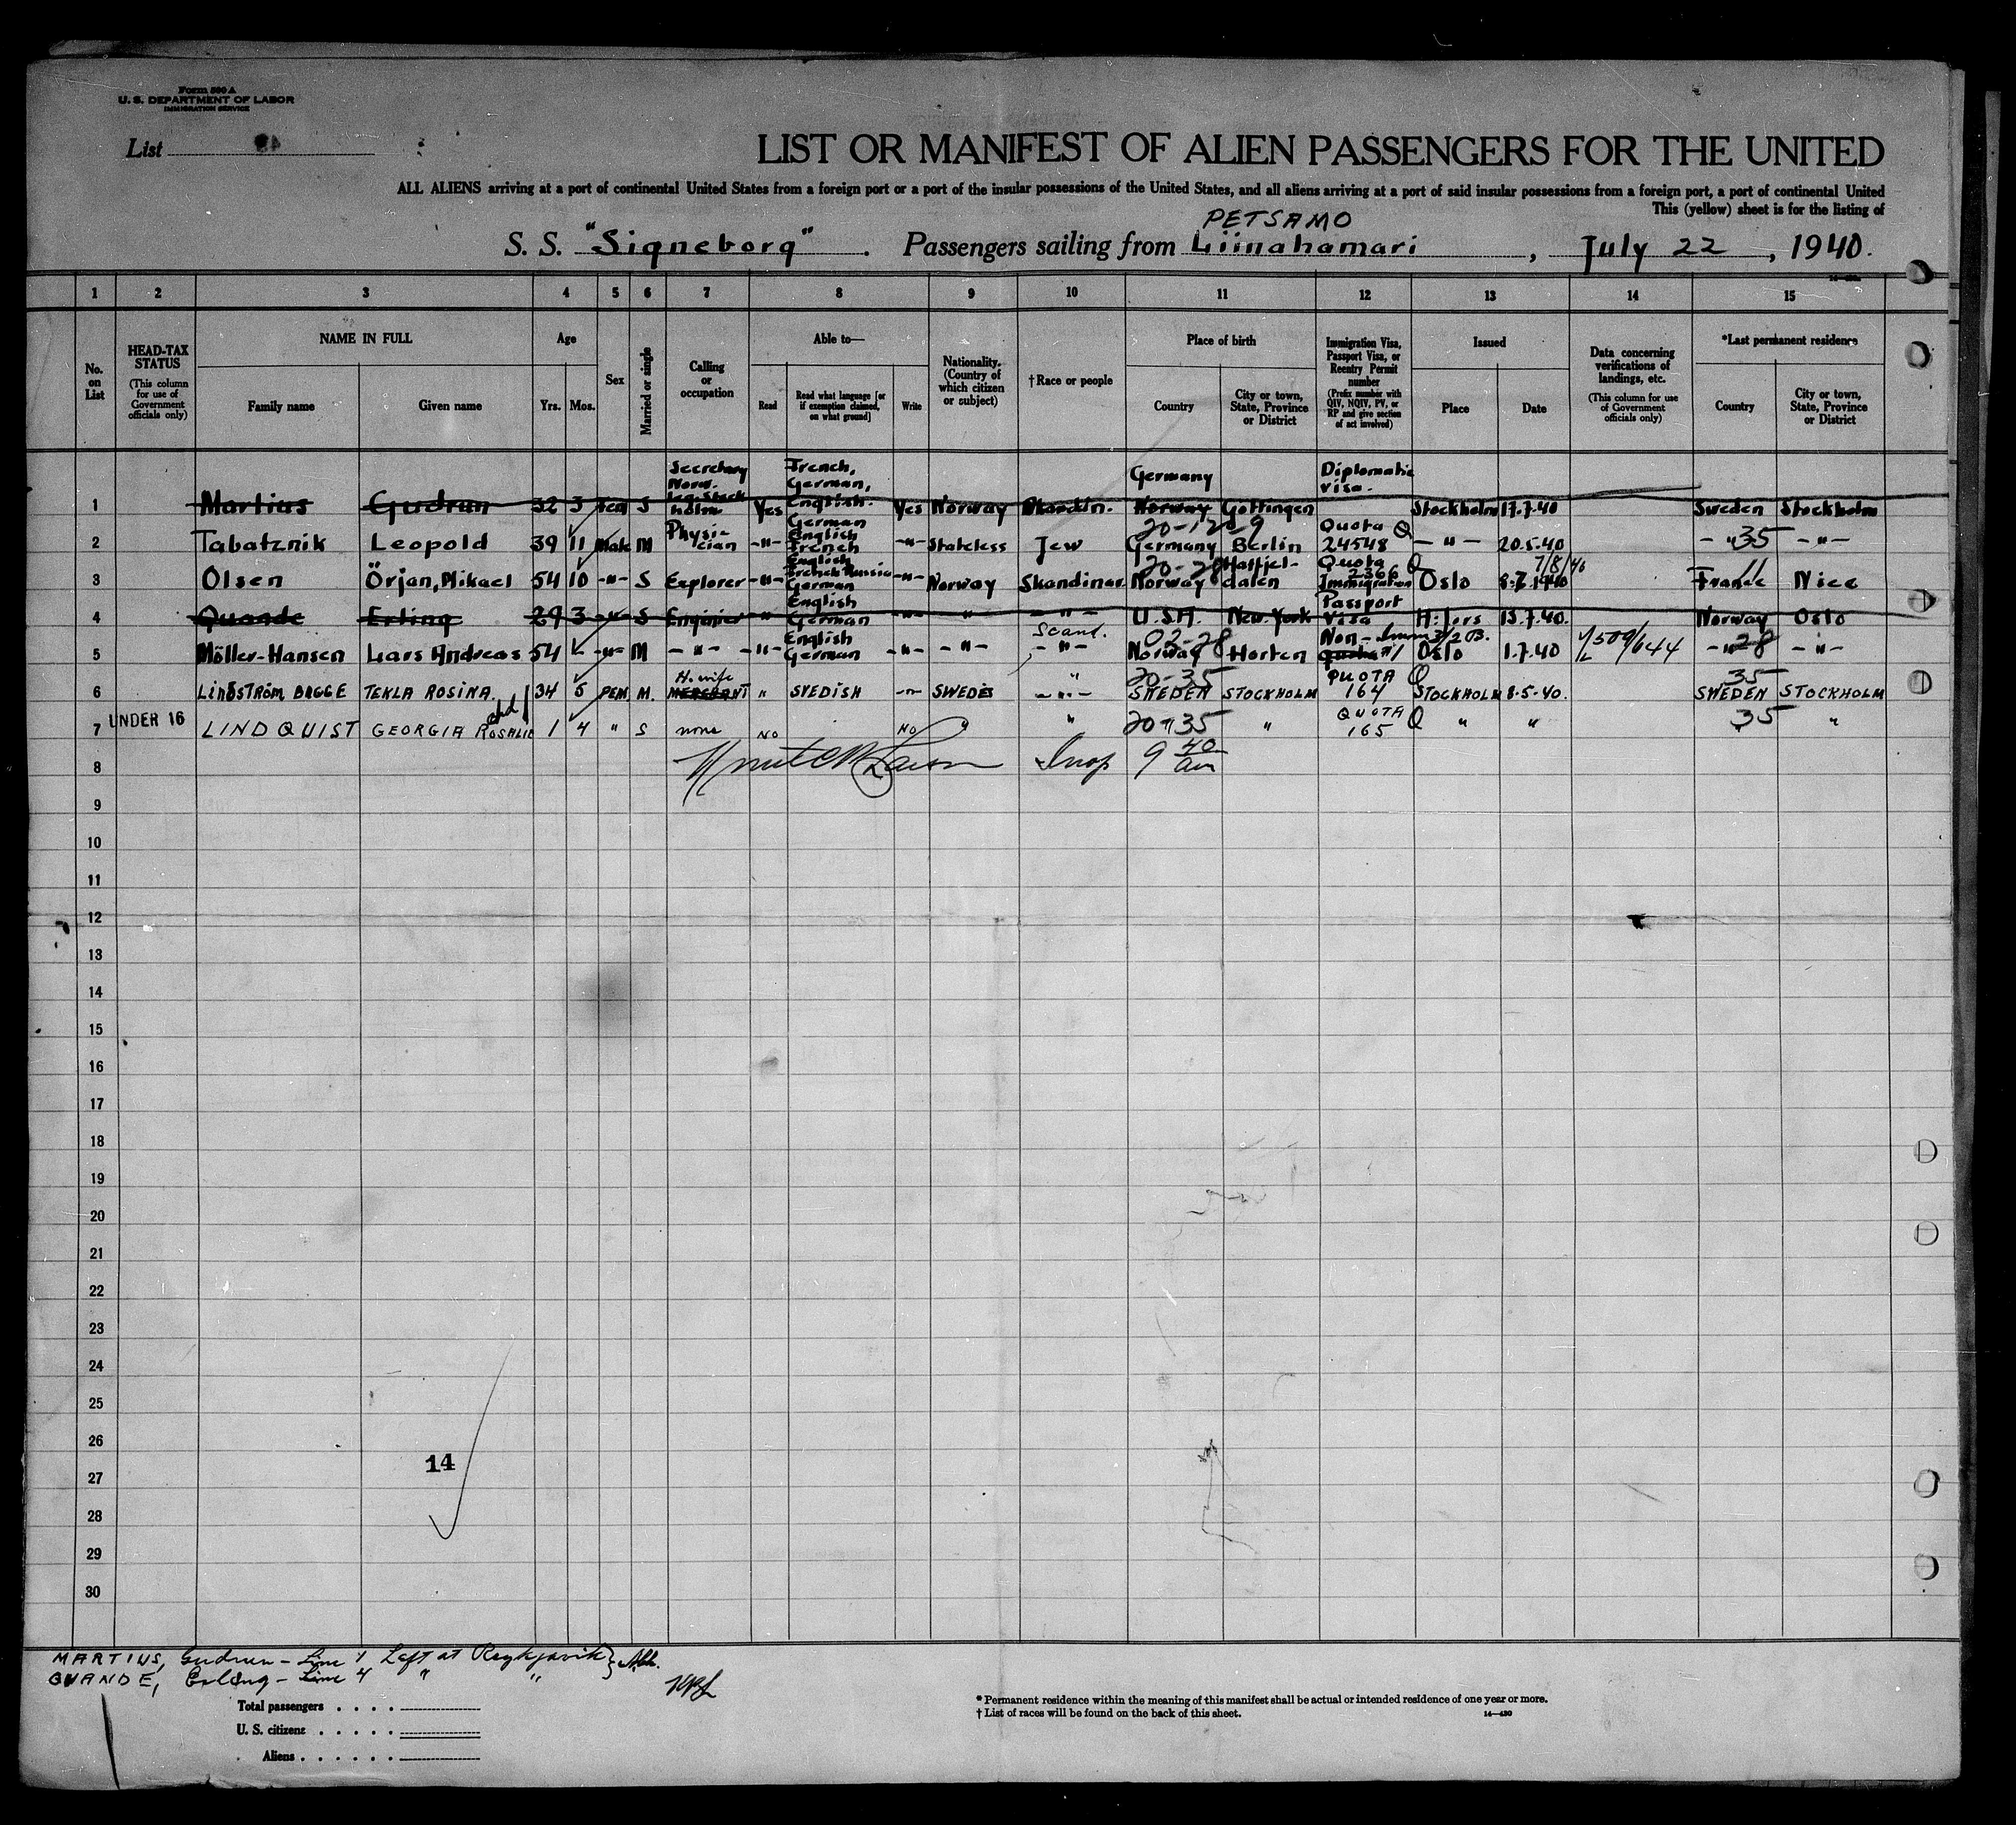 Form 500 A
U. S. DEPARTMENT OF LABOR
IMMIGRATION SERVICE
List
LIST OR MANIFEST OF ALIEN PASSENGERS FOR THE UNITED
ALL ALIENS arriving at a port of continental United States from a foreign port or a port of the insular possessions of the United States, and all aliens arriving at a port of said insular possessions from a foreign port, a port of continental United
This (yellow) sheet is for the listing of
PETSAMO
S. S. "Signeborg". Passengers sailing from Liinahamari, July 22, 1940.
1 2 3 4 5 6 7 8 9 10 11 12 13 14 15
No. on List
HEAD-TAX STATUS (This column for use of Government officials only)
NAME IN FULL Family name Given name
Age Yrs. Mos.
Sex
Married or single
Calling or occupation
Able to— Read Read what language [or if exemption claimed, on what ground] Write
Nationality. (Country of which citizen or subject)
†Race or people
Place of birth Country City or town, State, Province or District
Immigration Visa, Passport Visa, or Reentry Permit number (Prefix number with QIV, NQIV, PV, or RP and give section of act involved)
Issued Place Date
Data concerning verifications of landings, etc. (This column for use of Government officials only)
*Last permanent residence Country City or town, State, Province or District
1 Martius Gudrun 32 3 Fem S Secretary Norw. Leg. Stockholm Yes French, German, English. Yes Norway Skandin. Germany Norway Göttingen Diplomatic visa. Stockholm 17.7.40 Sweden Stockholm
2 Tabatznik Leopold 39 11 Male M Physician -"- German English French -"- Stateless Jew Germany Berlin Quota 24548 Q -"- 20.5.40 -"- 35 -"-
3 Olsen Örjan, Mikael 54 10 -"- S Explorer -"- English French Russia German -"- Norway Skandinav. 20-28 Norway Hatfjeldalen Quota 2366 Immigration Q Oslo 8.7.1940 7/8/40 France 11 Nice
4 Quande Erling 29 3 -"- S Enginier " English German -"- " -"- U.S.A. New York Passport Visa H:fors 13.7.40. Norway Oslo
5 Möller-Hansen Lars Andreas 54 - -"- M -"- -"- English German -"- -"- Scand. -"- 02-28 Norway Horten Non- quota Oslo 1.7.40 -"- 28 -"-
6 LINDSTRÖM BAGGE TEKLA ROSINA. 34 5 FEM. M. H. wife MERCHANT " SVEDISH -"- SWEDES -"- 20-35 SWEDEN STOCKHOLM QUOTA 164 Q STOCKHOLM 8.5-40. 35 SWEDEN STOCKHOLM
UNDER 16
7 LINDQUIST GEORGIA ROSALIE chd 1 4 " S none NO NO " " 20-35 " QUOTA 165 Q " " 35 "
8 Insp 9 40 am
9
10
11
12
13
14
15
16
17
18
19
20
21
22
23
24
25
26
14
27
28
29
30
MARTIUS, Gudrun - Line 1 Left at Reykjavik
QUANDE, Erling - Line 4 " "
Total passengers . . . .
U. S. citizens . . . . .
Aliens . . . . . .
* Permanent residence within the meaning of this manifest shall be actual or intended residence of one year or more.
† List of races will be found on the back of this sheet.
14—430